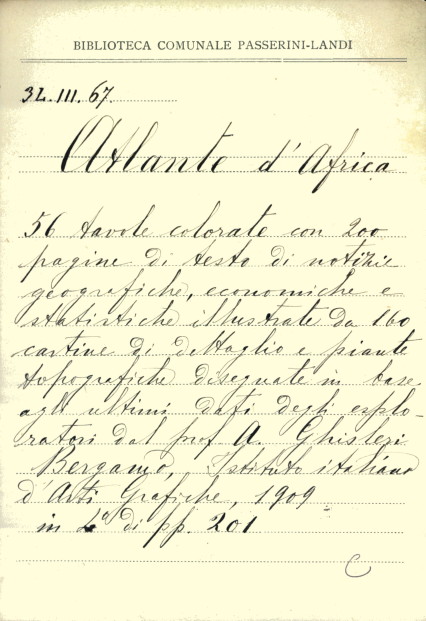 BIBLIOTECA COMUNALE PASSERINI-LANDI
3L.III.67.
Atlante d'Africa
56 tavole colorate con 200
pagine di testo di notizie
geografiche, economiche e
statistiche illustrate da 160
cartine di dettaglio e piante
topografiche disegnate in base
agli ultimi dati degli esplo-
ratori dal prof A. Ghisleri
Bergamo, Istituto italiano
d'Arti Grafiche, 1909
in 4º di pp. 201
C